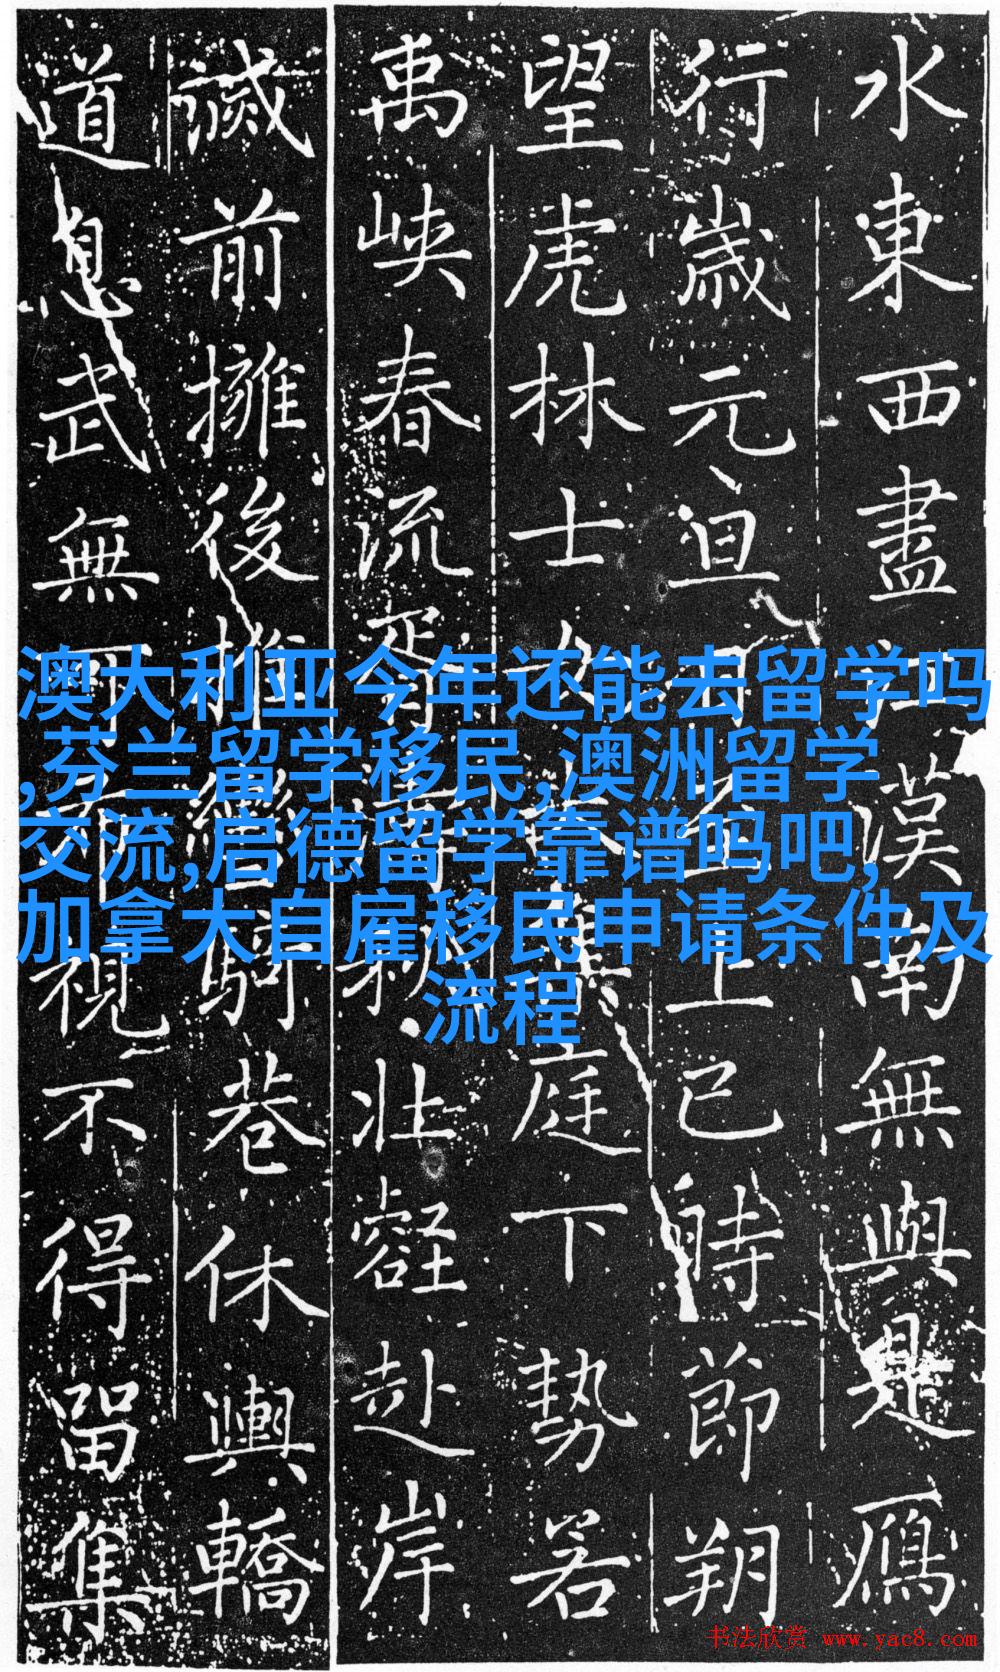 水東西盡漢南無與是鴈
行歲元旦上巳時節朔
望虎林士庭下勢若
禹峽春流胥秋壯壑赴岸
前擁後推騎巷休輿轎
道息武無視不得留集
澳大利亚今年还能去留学吗
,芬兰留学移民,澳洲留学
交流,启德留学靠谱吗吧,
加拿大自雇移民申请条件及
流程
书法欣赏 www.yac8.com